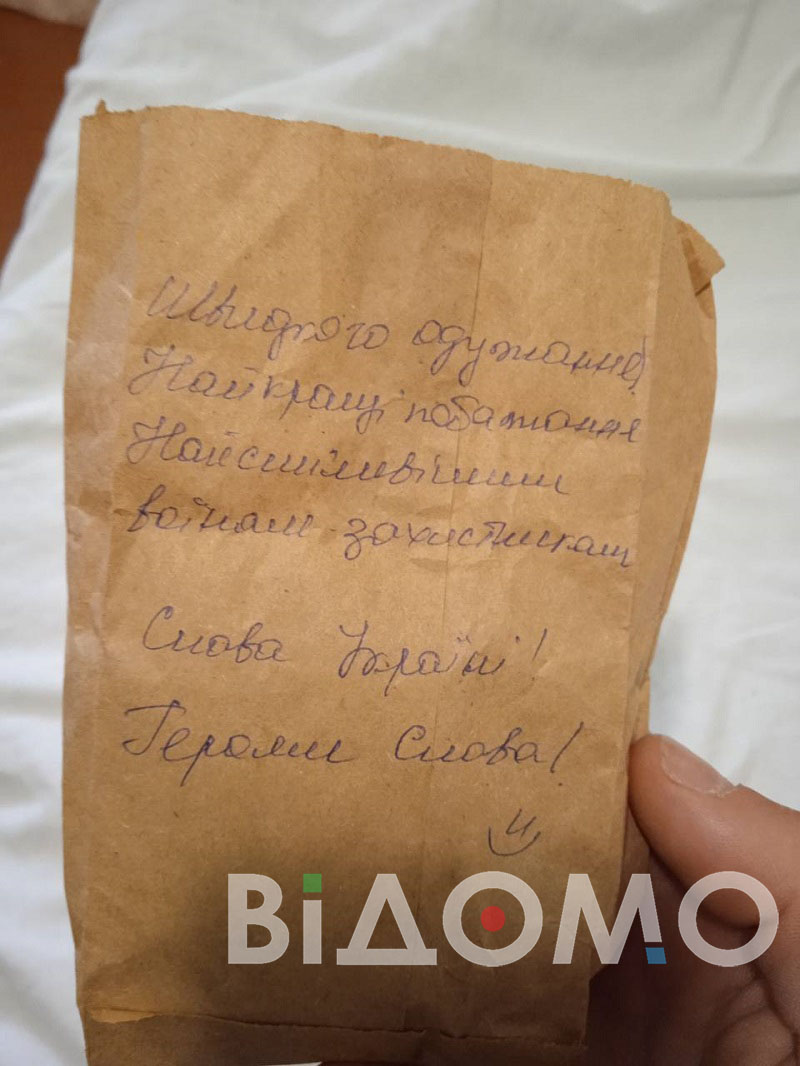 Швидкого одужання,
Найкращі побажання
Найсміливішим
воїнам захисникам
Слова Україні!
Героям Слова!
ВіДОМО